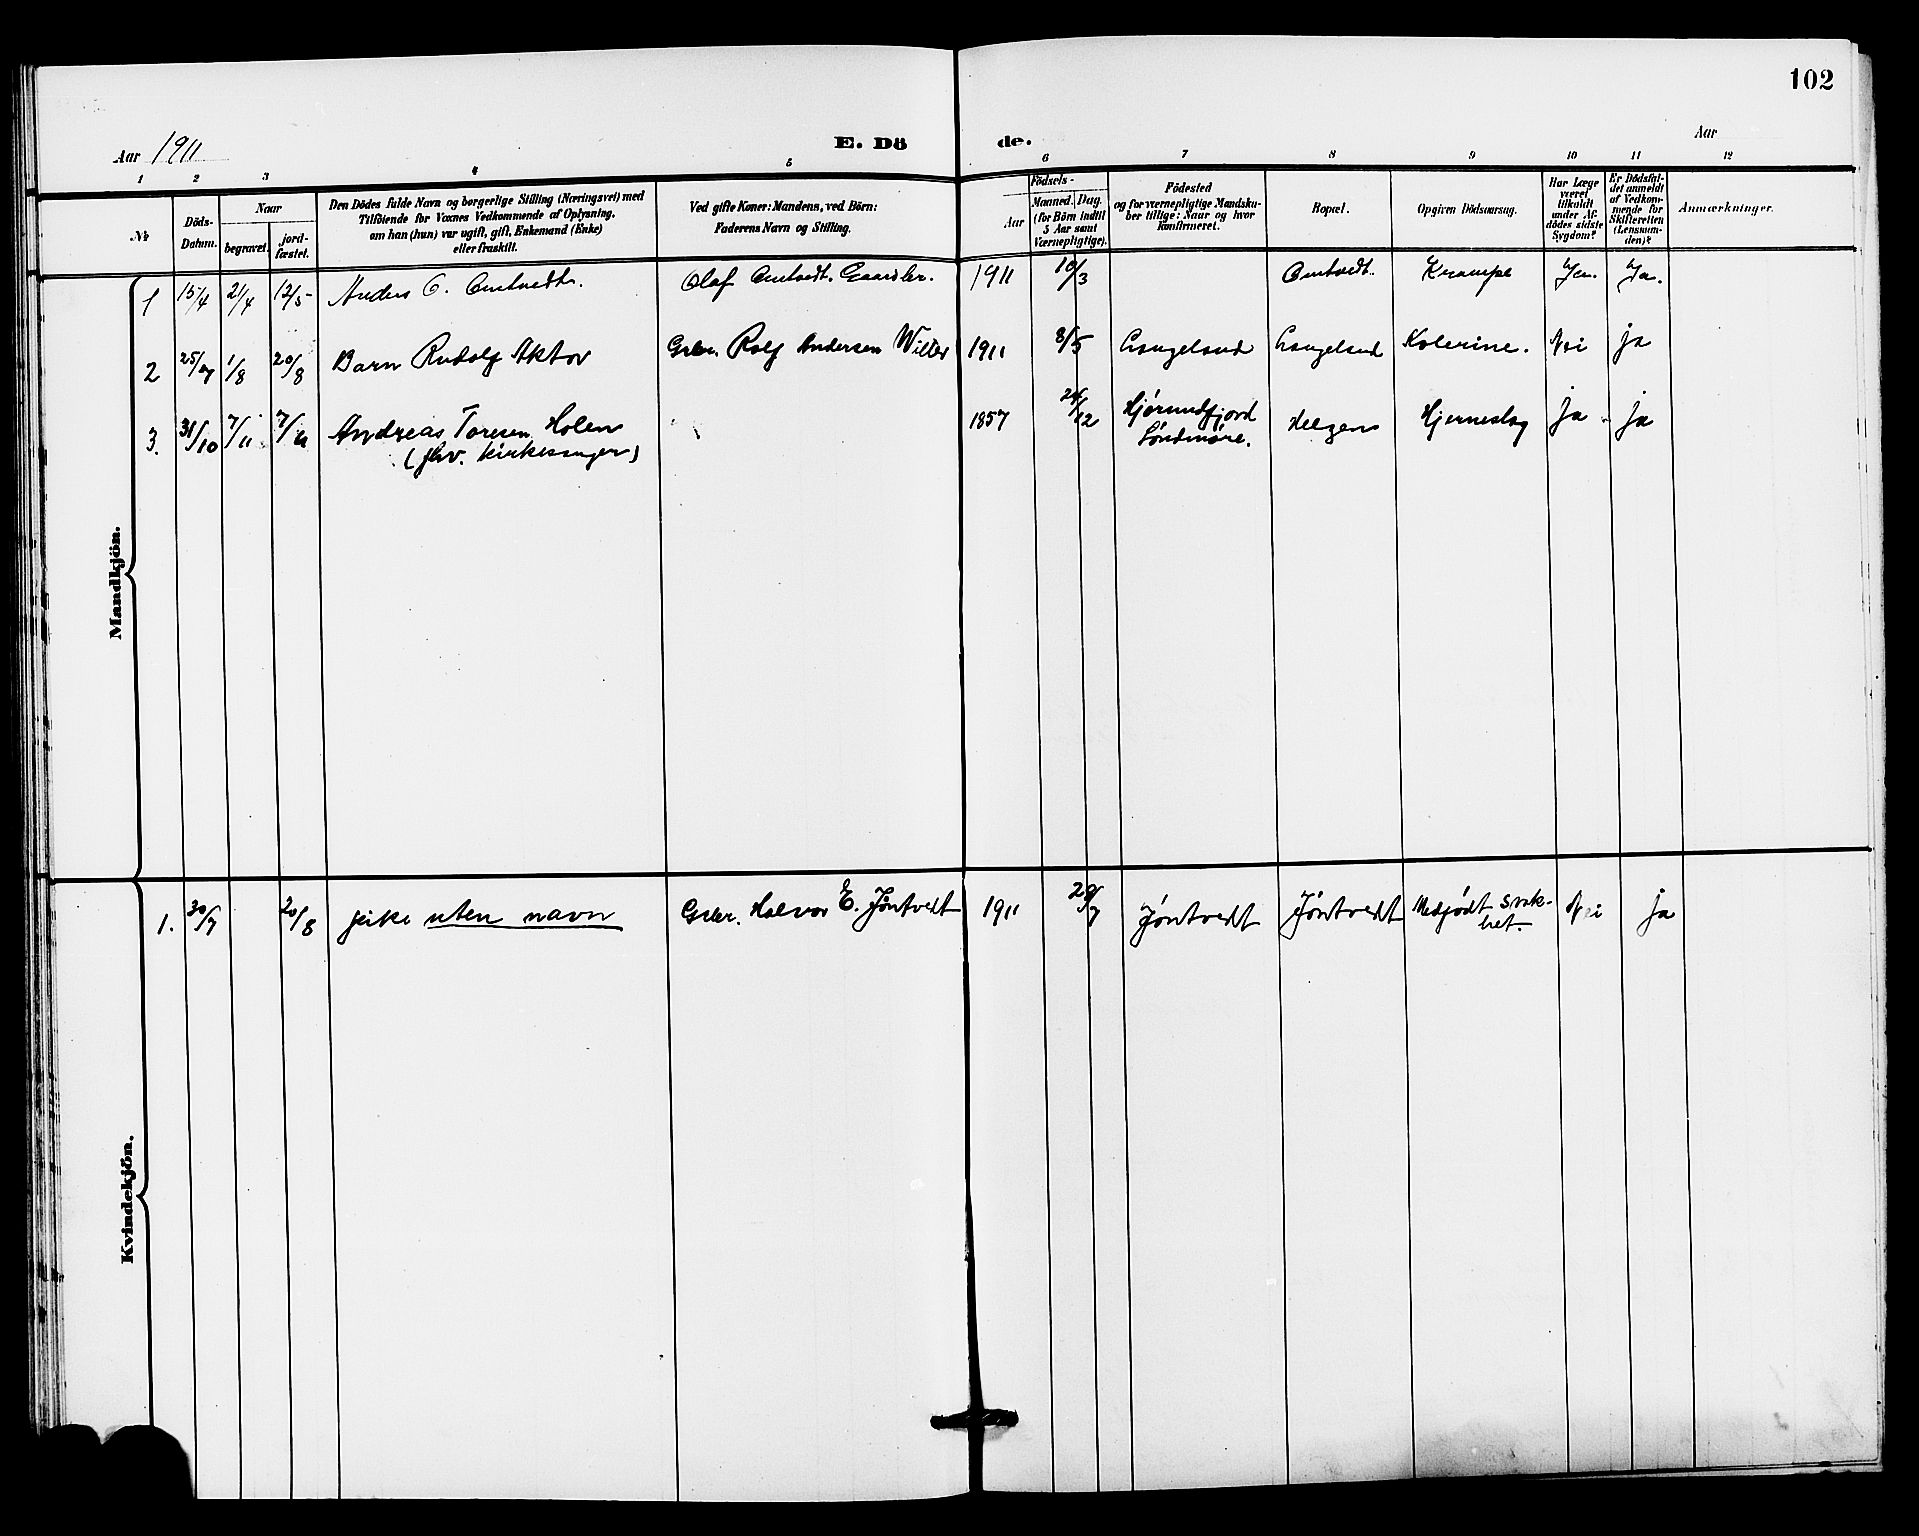 102
Aar 1911
E. Dö
de.
Aar
1 2 3 4 5 6 7 8 9 10 11 12
№
Döds-
Datum.
Naar
begravet.
jord-
fæstet.
Den Dödes fulde Navn og borgerlige Stilling (Næringsvei) med
Tilföiende for Voxnes Vedkommende af Oplysning,
om han (hun) var ugift, gift, Enkemand (Enke)
eller fraskilt.
Ved gifte Koner: Mandens, ved Börn:
Faderens Navn og Stilling.
Aar
Födsels-
Maaned. Dag.
(for Börn indtil
5 Aar samt
Værnepligtige).
Födested
og for værnepligtige Mandsku-
ber tillige: Naar og hvor
konfirmeret.
Bopæl.
Opgiven Dödsaarsag.
Har Læge
været
tilkaldt
under Af-
dödes sidste
Sygdom?
Er Dödsfal-
det anmeldt
af Vedkom-
mende for
Skifteretten
(Lensman-
den)?
Anmærkninger.
Mandkjön.
1 15/4 21/4 12/5 Anders O. Omtvedt. Olaf Omtvedt. Gaardbr. 1911 10/3 Omtvedt. Krampe Ja. Ja.
2 25/7 1/8 20/8 Barn Rudolf Aktov Gbr. Rolf Andersen 1911 8/5 Langeland Langeland Kolerine. Nei ja
3. 31/10 7/11 7/11 Andreas Toresen Holen 1857 12 Hjørundfjord Helgen Hjerneslag ja ja
(fhv. kirkesanger) Søndmøre.
Kvindekjön.
1. 30/7 20/8 pike uten navn Gbr. Halvor E. Jøntvedt 1911 29/7 Jøntvedt Jøntvedt Medfødt svak- Nei ja
het.